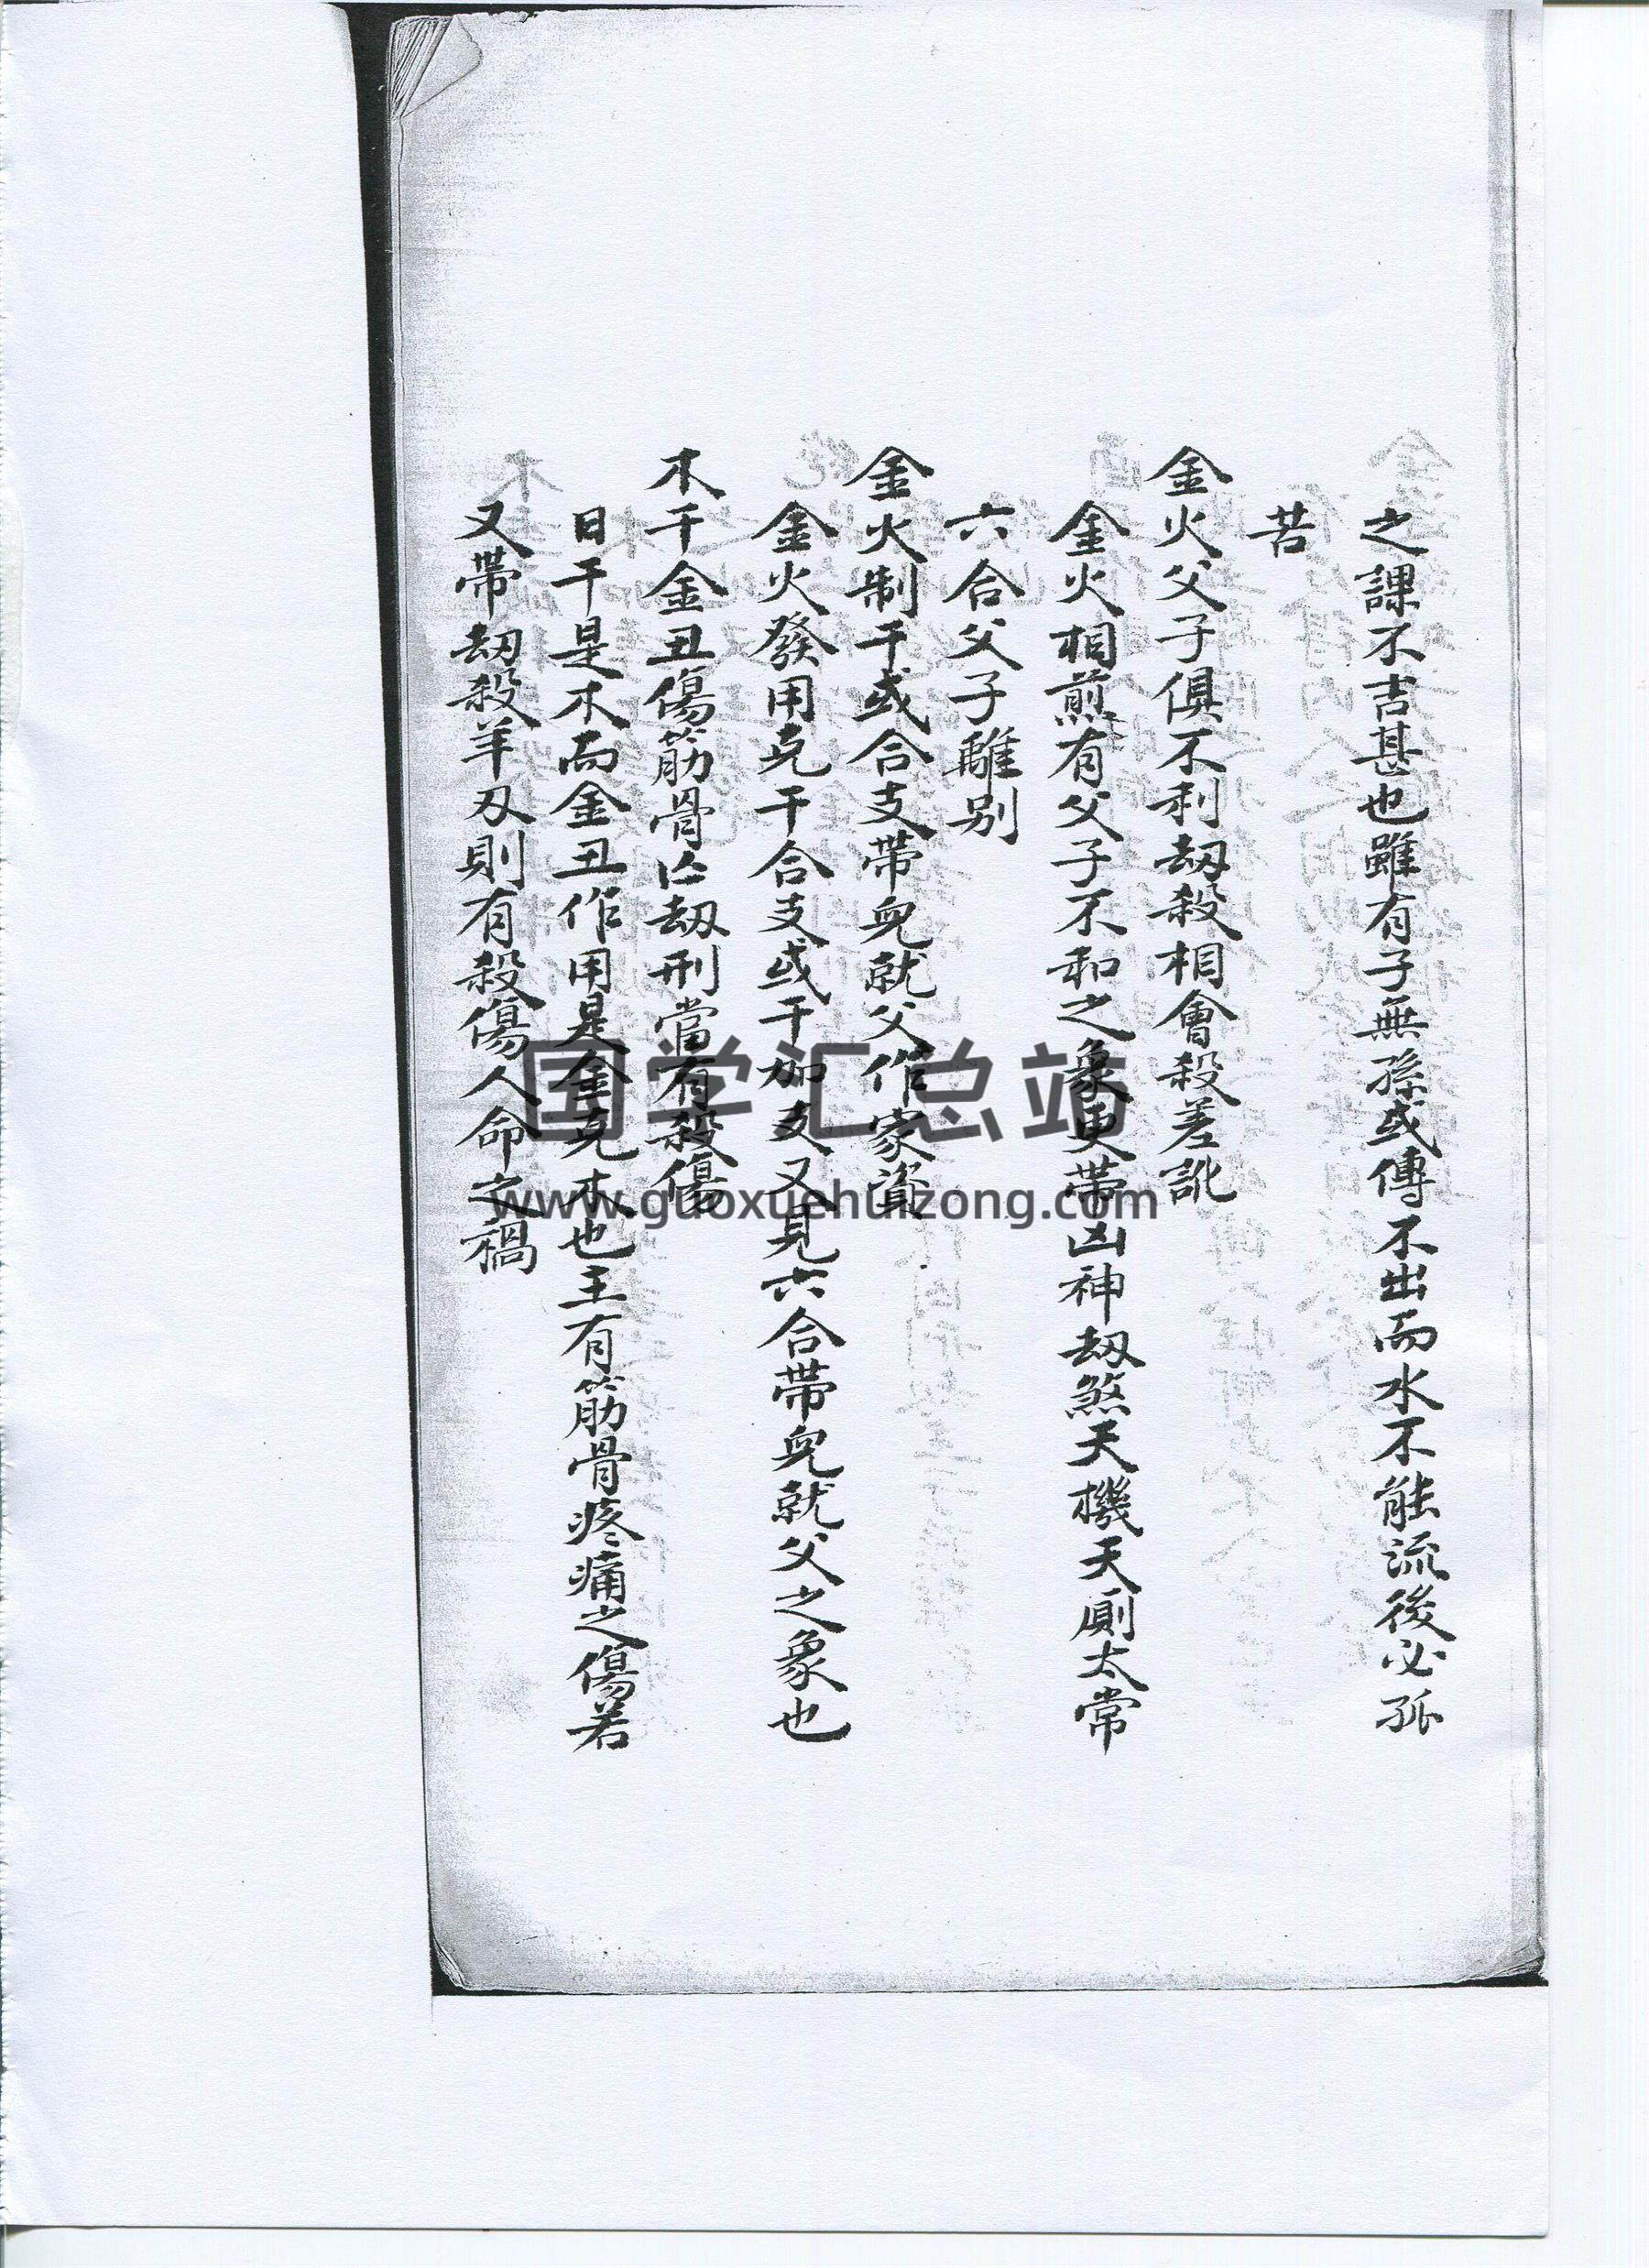 之課不吉甚也雖有子無孫或傳不出而水不能流後必孤
苦
金火父子俱不利劫殺相會殺差訛
金火相煎有父子不和之象更帶凶神劫煞天機天厠太常
六合父子離别
金火制干或合支帶兒就父作家資
金火發用克干合支或干加支又見六合帶兒就父之象也
木干金丑傷筋骨亡劫刑當有殺傷
日干是木而金丑作用是金克木也主有筋骨疼痛之傷若
又帶劫殺羊刃則有殺傷人命之禍
国学汇总站
www.guoxuehuizong.com